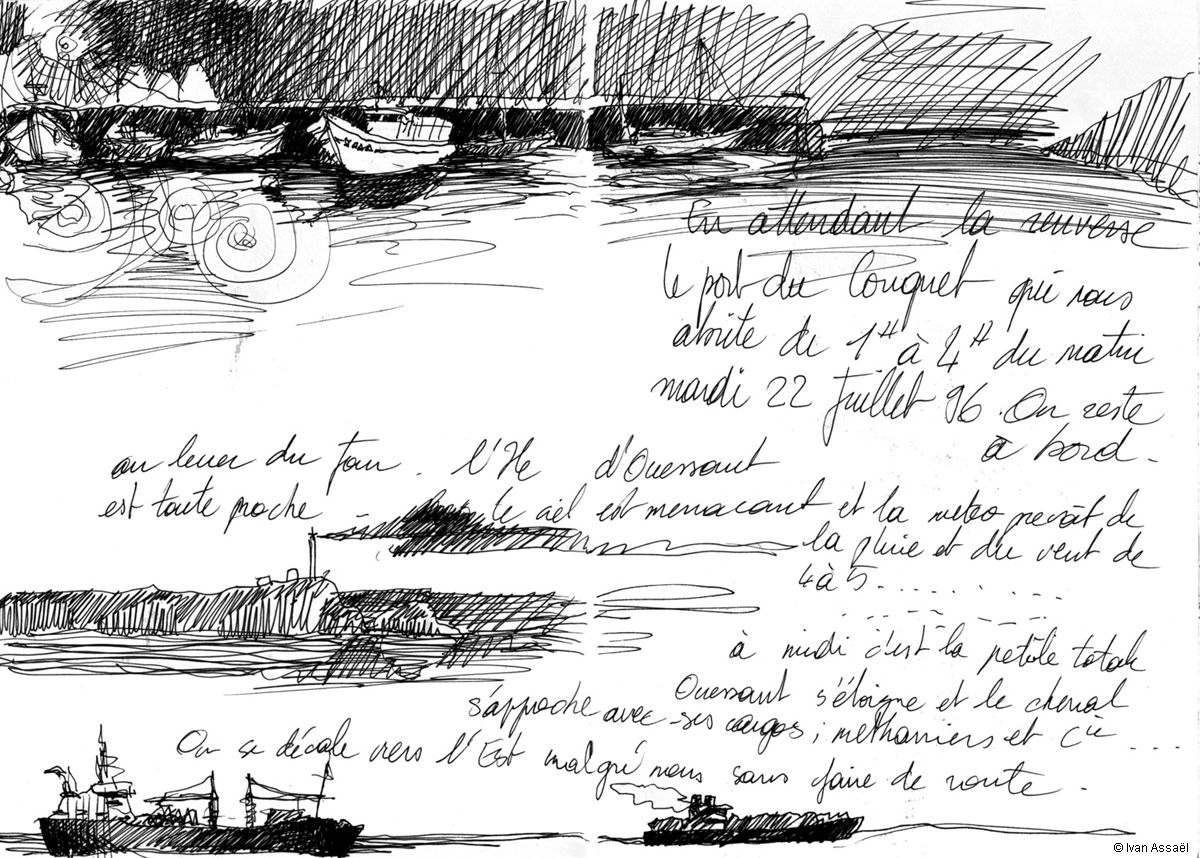 En attendant la renverse
le port du Conquet qui nous
abrite de 1H à 4H du matin
mardi 22 Juillet 96. On reste
à bord.
au lever du jour. l'Ile d'Ouessant
est toute proche _ le ciel est menacant et la meteo prevoit de
la pluie et du vent de
4 à 5.......
à midi c'est la petole totale
Ouessant s'éloigne et le chenal
s'approche avec ses cargos; methaniers et Cie ....
On se décale vers l'Est malgré nous sans faire de route.
© Ivan Assaël